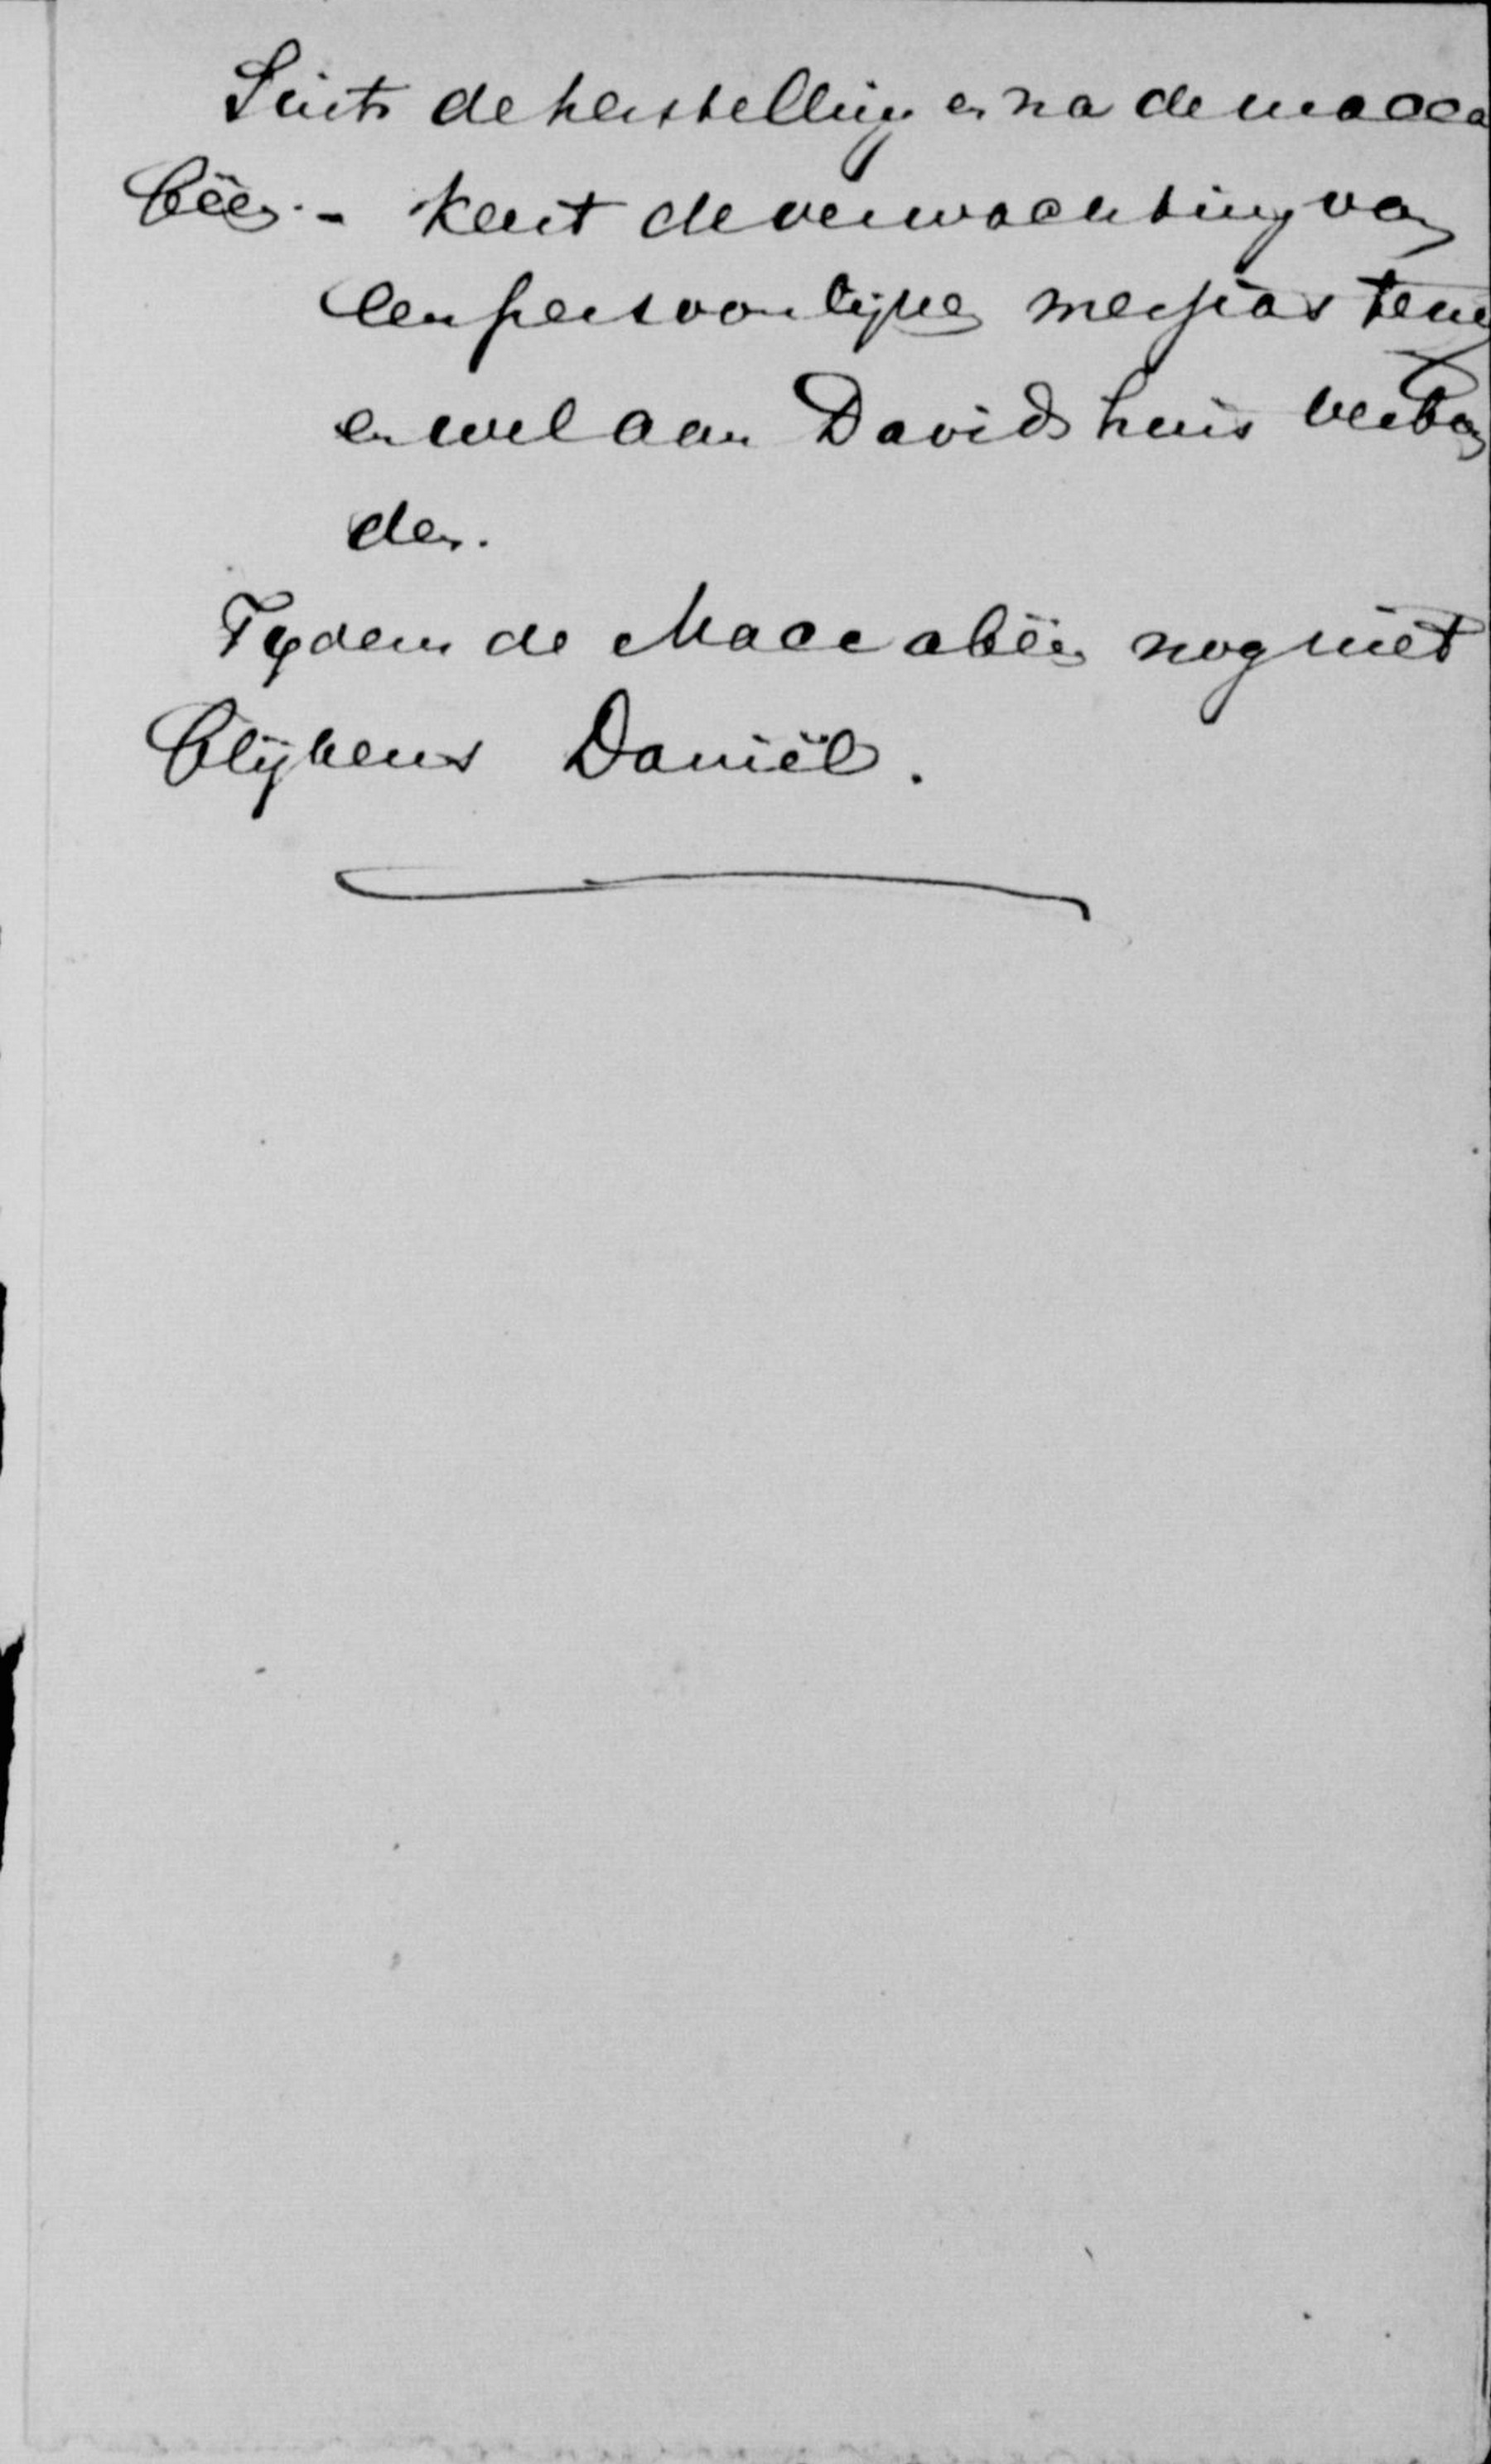 Sints de herstelling en na de macca
beën. - keert de verwachting van
een persoonlijken messias terug
en wel aan Davids huis verbon
den.
Tydens de Maccabeën nog niet
blijkens Daniël.